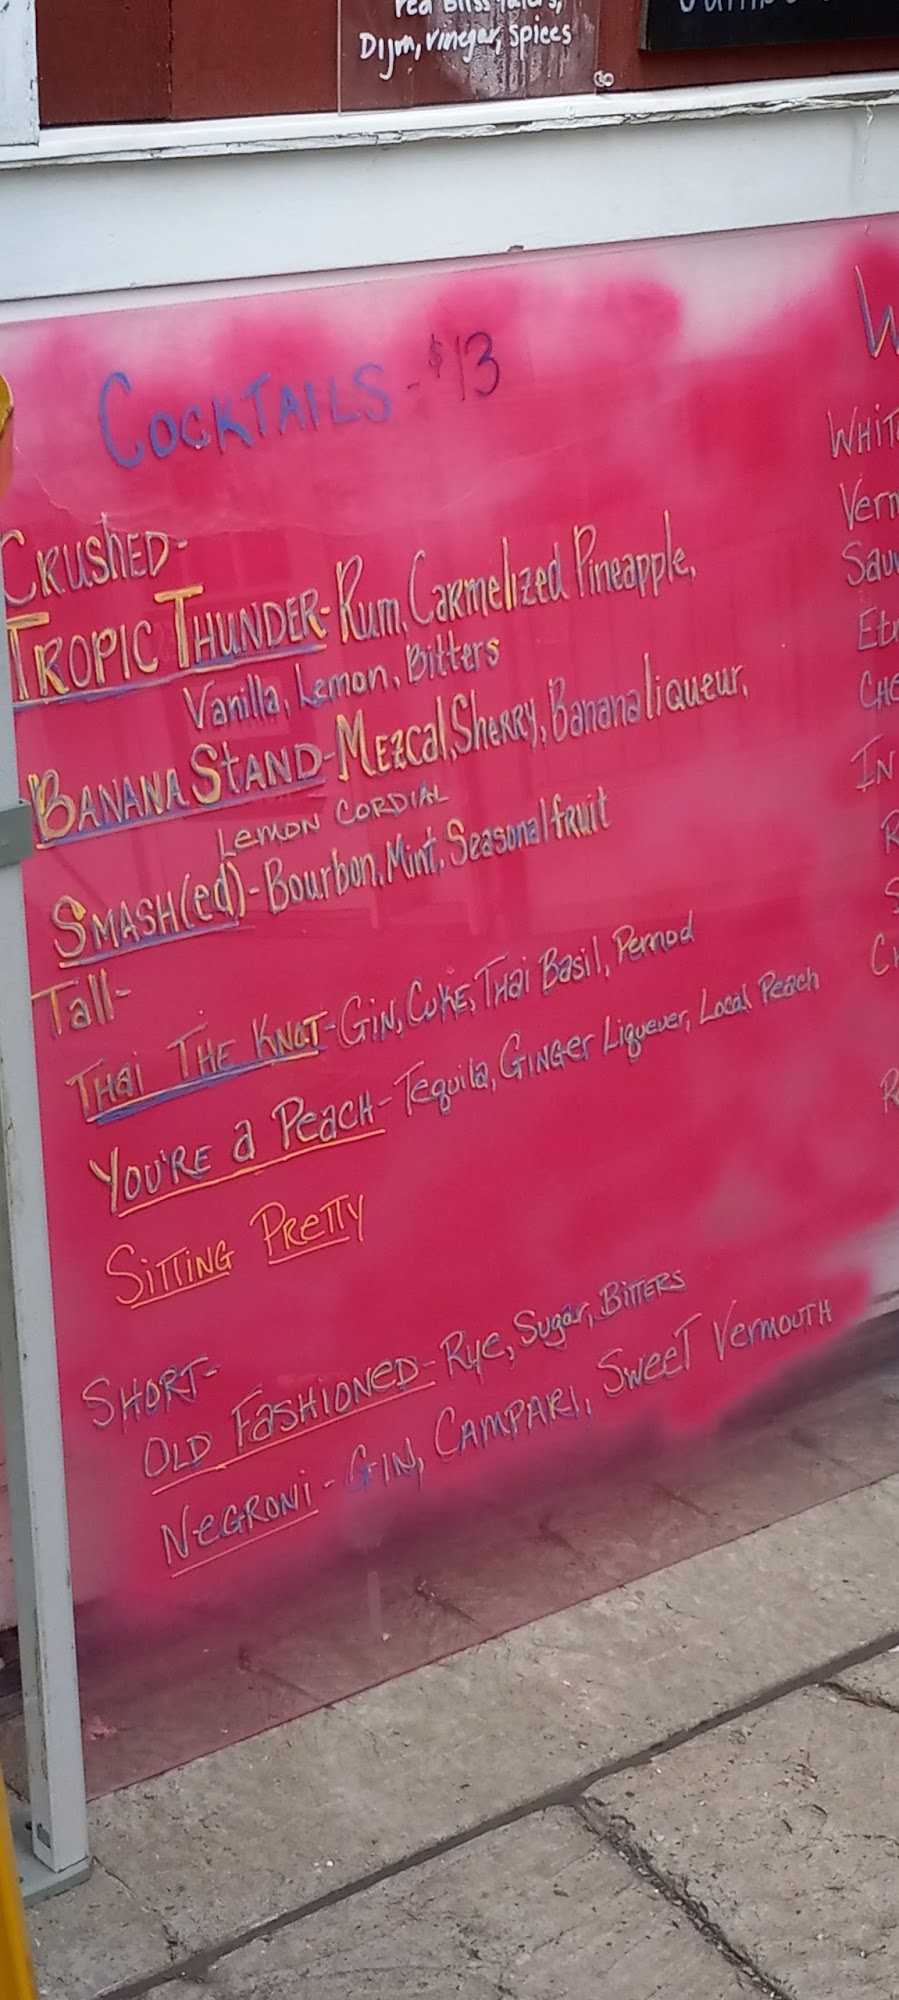 Dijon, vinegar, spices
COCKTAILS - $13
CRUSHED-
TROPIC THUNDER- Rum, Carmelized Pineapple,
Vanilla, Lemon, Bitters
BANANA STAND- Mezcal, Sherry, Banana liqueur,
LEMON CORDIAL
SMASH(ed)- Bourbon, Mint, Seasonal fruit
Tall-
THAI THE KNOT- GIN, CUKE, THAI Basil, Pernod
YOU'RE a PEACH- Tequila, GINGER Liqueuer, Local Peach
SITTING PRETTY
SHORT-
OLD FASHIONED- Rye, Sugar, BITTERS
NEGRONI - GIN, CAMPARI, SWEET VERMOUTH
IN